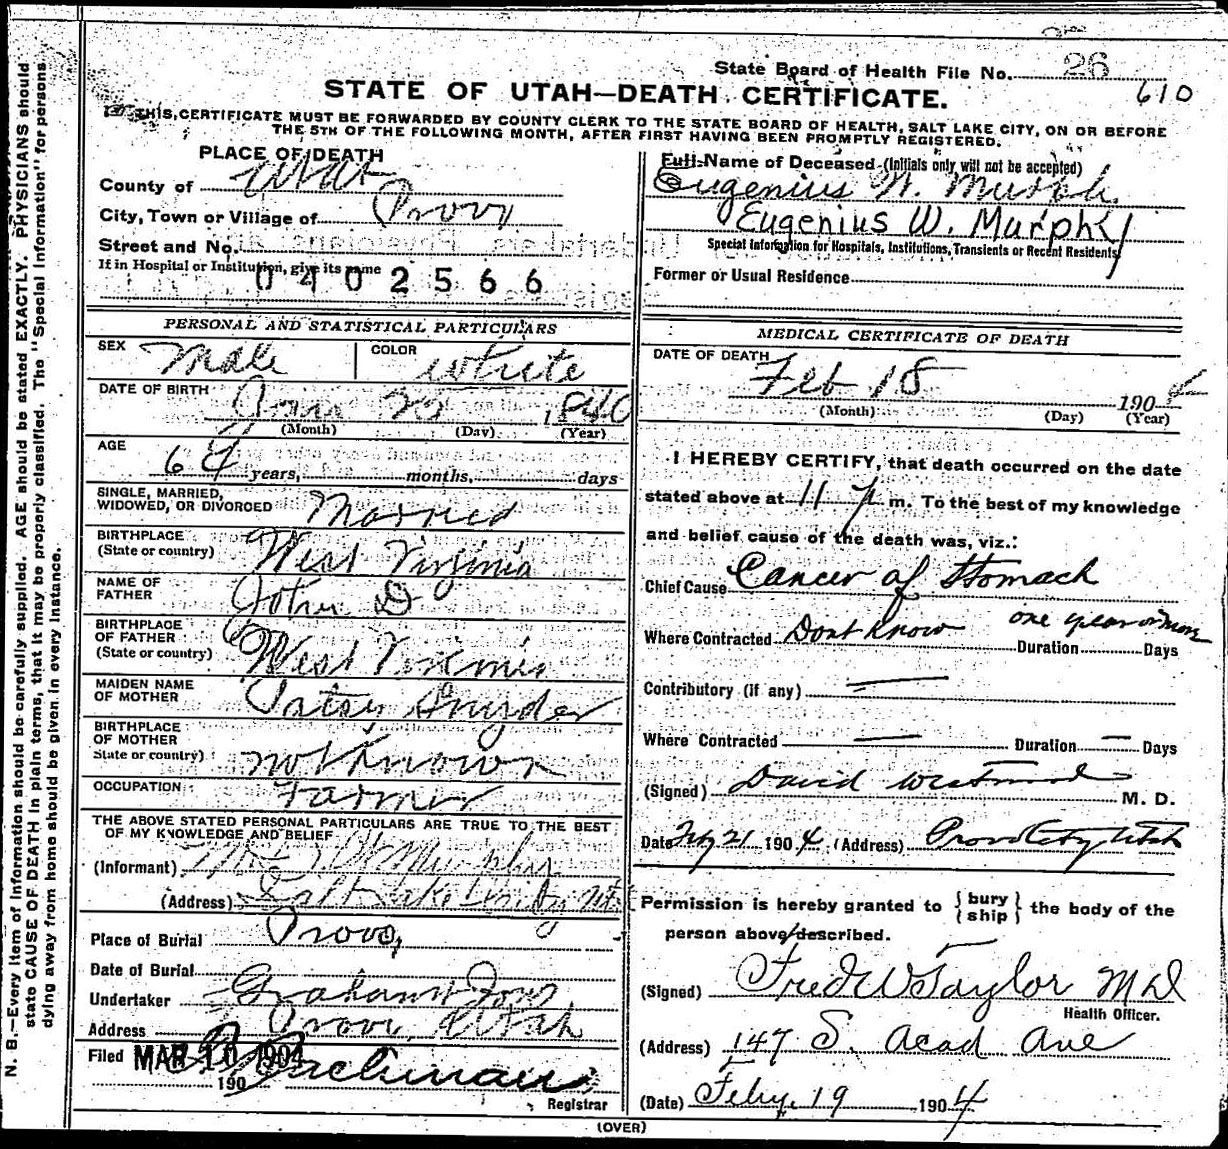 26
State Board of Health File No.
610
STATE OF UTAH—DEATH CERTIFICATE.
THIS CERTIFICATE MUST BE FORWARDED BY COUNTY CLERK TO THE STATE BOARD OF HEALTH, SALT LAKE CITY, ON OR BEFORE
THE 5TH OF THE FOLLOWING MONTH, AFTER FIRST HAVING BEEN PROMPTLY REGISTERED.
PLACE OF DEATH
County of Utah
City, Town or Village of Provo
Street and No.
If in Hospital or Institution, give its name
0402566
Full Name of Deceased (Initials only will not be accepted)
Eugenius W. Murphy
Eugenius W. Murphy
Special Information for Hospitals, Institutions, Transients or Recent Residents
Former or Usual Residence
PERSONAL AND STATISTICAL PARTICULARS
SEX Male COLOR White
DATE OF BIRTH Jan 1840
(Month) (Day) (Year)
AGE 64 years, months, days
SINGLE, MARRIED,
WIDOWED, OR DIVORCED Married
BIRTHPLACE
(State or country) West Virginia
NAME OF
FATHER John D
BIRTHPLACE
OF FATHER
(State or country) West Virginia
MAIDEN NAME
OF MOTHER Patsy Snyder
BIRTHPLACE
OF MOTHER
State or country) not known
OCCUPATION Farmer
THE ABOVE STATED PERSONAL PARTICULARS ARE TRUE TO THE BEST
OF MY KNOWLEDGE AND BELIEF
(Informant) Murphy
(Address) Salt Lake City
Place of Burial Provo
Date of Burial
Undertaker Graham
Address Provo, Utah
Filed MAR 10 1904
190
Registrar
MEDICAL CERTIFICATE OF DEATH
DATE OF DEATH
Feb 18 1904
(Month) (Day) (Year)
I HEREBY CERTIFY, that death occurred on the date
stated above at 11 p m. To the best of my knowledge
and belief cause of the death was, viz.:
Chief Cause Cancer of Stomach
one year or more
Where Contracted Dont Know Duration Days
Contributory (if any)
Where Contracted Duration Days
(Signed) David Westwood M. D.
Date Feby 21 1904 (Address) Provo City Utah
Permission is hereby granted to {bury
ship} the body of the
person above described.
(Signed) Fred W Taylor MD
Health Officer.
(Address) 147 S. Acad Ave
(Date) Feby. 19 1904
(OVER)
N. B.—Every item of information should be carefully supplied. AGE should be stated EXACTLY. PHYSICIANS should
state CAUSE OF DEATH in plain terms, that it may be properly classified. The "Special Information" for persons
dying away from home should be given in every instance.